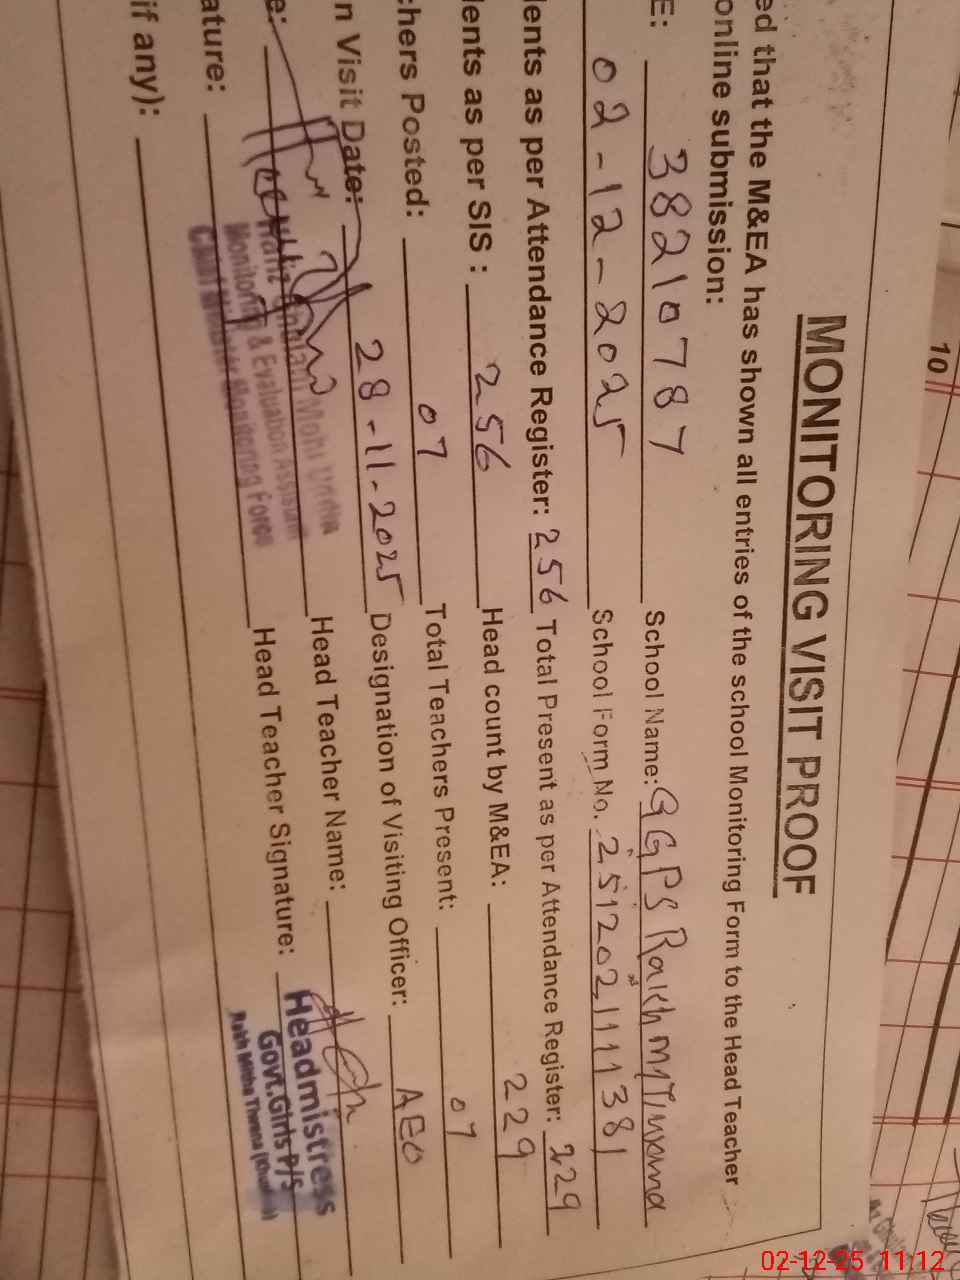 10
MONITORING VISIT PROOF
ed that the M&EA has shown all entries of the school Monitoring Form to the Head Teacher
online submission:
E: 38210787 School Name: GGPS Rakh
02-12-2025 School Form No. 251202111381
lents as per Attendance Register: 256 Total Present as per Attendance Register: 229
lents as per SIS : 256 Head count by M&EA: 229
chers Posted: 07 Total Teachers Present: 07
n Visit Date: 28-11-2025 Designation of Visiting Officer: AEO
e: Head Teacher Name:
ature: Head Teacher Signature:
if any):
Monitoring & Evaluation Assistant
Chief Minister Monitoring Force
Headmistress
Govt.Girls P/S
02-12-25 11:12